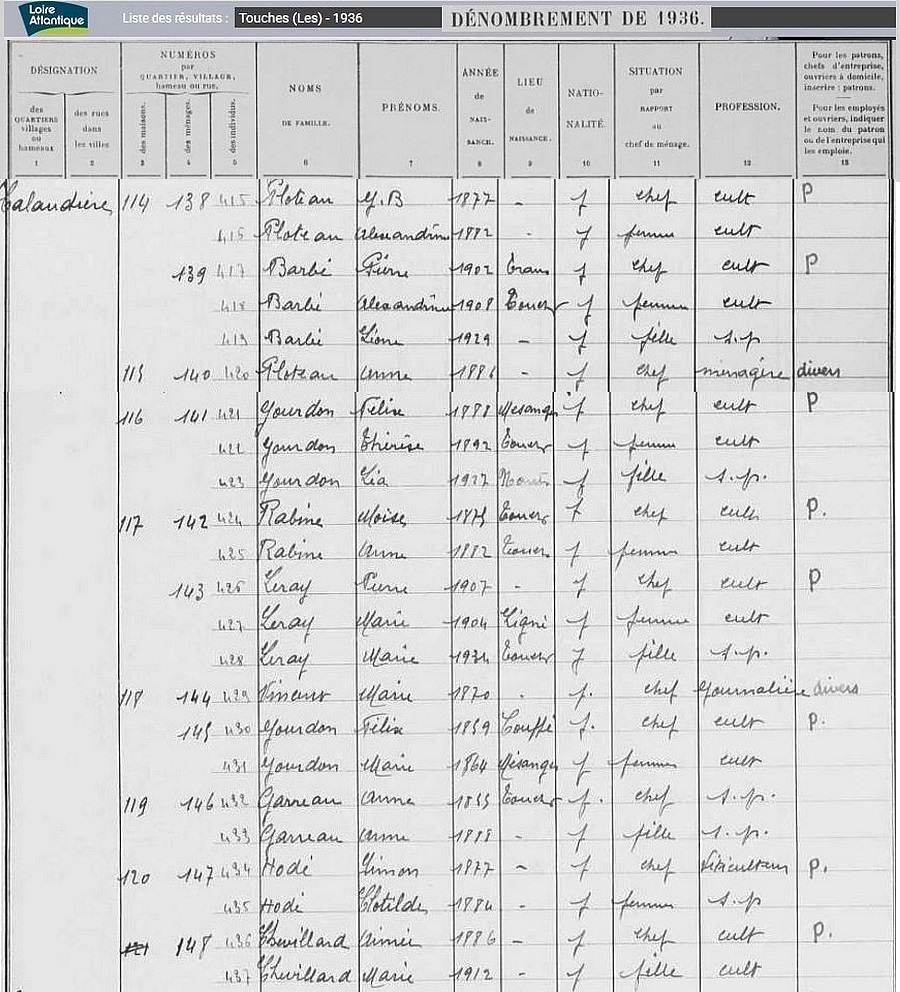 Loire Atlantique Liste des résultats : Touches (Les) - 1936 DÉNOMBREMENT DE 1936.
DÉSIGNATION NUMÉROS par QUARTIER, VILLAGE, hameau ou rue. NOMS DE FAMILLE. PRÉNOMS. ANNÉE de NAIS- SANCE. LIEU de NAISSANCE. NATIO- NALITÉ. SITUATION par RAPPORT au chef de ménage. PROFESSION. Pour les patrons, chefs d'entreprise, ouvriers à domicile, inscrire : patrons. Pour les employés et ouvriers, indiquer le nom du patron ou de l'entreprise qui les emploie.
des QUARTIERS villages ou hameaux des rues dans les villes des maisons. des ménages. des individus.
1 2 3 4 5 6 7 8 9 10 11 12 13
Talandière 114 138 415 Ploteau J.B 1877 - f chef cult P
416 Ploteau Alexandrine 1882 - f femme cult
139 417 Barbé Pierre 1902 Trans f chef cult P
418 Barbé Alexandrine 1908 Touches f femme cult
419 Barbé Léone 1929 - f fille s.p
115 140 420 Ploteau Anne 1886 - f chef ménagère divers
116 141 421 Gourdon Félix 1888 Mésanger f chef cult P
422 Gourdon Thérèse 1892 Touches f femme cult
423 Gourdon Léa 1927 f fille s.p.
117 142 424 Rabine Moïse 1875 Touches f chef cult P.
425 Rabine Anne 1882 Touches f femme cult
143 426 Leray Pierre 1907 - f chef cult P
427 Leray Marie 1904 Ligné f femme cult
428 Leray Marie 1934 Touches f fille s.p.
118 144 429 Vincent Marie 1870 - f. chef Journalière divers
145 430 Gourdon Félix 1859 Couffé f. chef cult P.
431 Gourdon Marie 1864 Mésanger f femme cult
119 146 432 Garreau Anne 1855 Touches f. chef s.p.
433 Garreau Anne 1888 - f fille s.p.
120 147 434 Hodé Simon 1877 - f chef Viticulteur P.
435 Hodé Clotilde 1884 - f femme s.p
121 148 436 Chevillard Aimée 1886 - f chef cult P.
437 Chevillard Marie 1912 - f fille cult